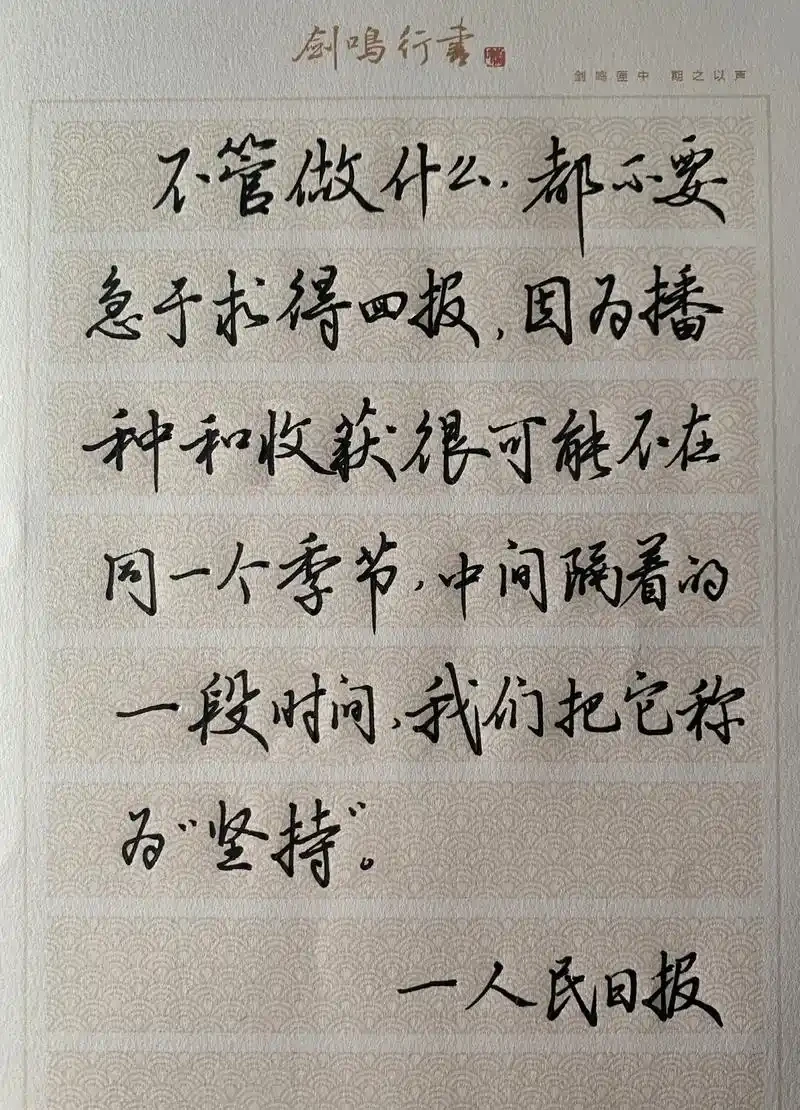 剑鸣行书
剑鸣匣中 期之以声
不管做什么，都不要
急于求得回报，因为播
种和收获很可能不在
同一个季节，中间隔着的
一段时间，我们把它称
为“坚持”。
一人民日报